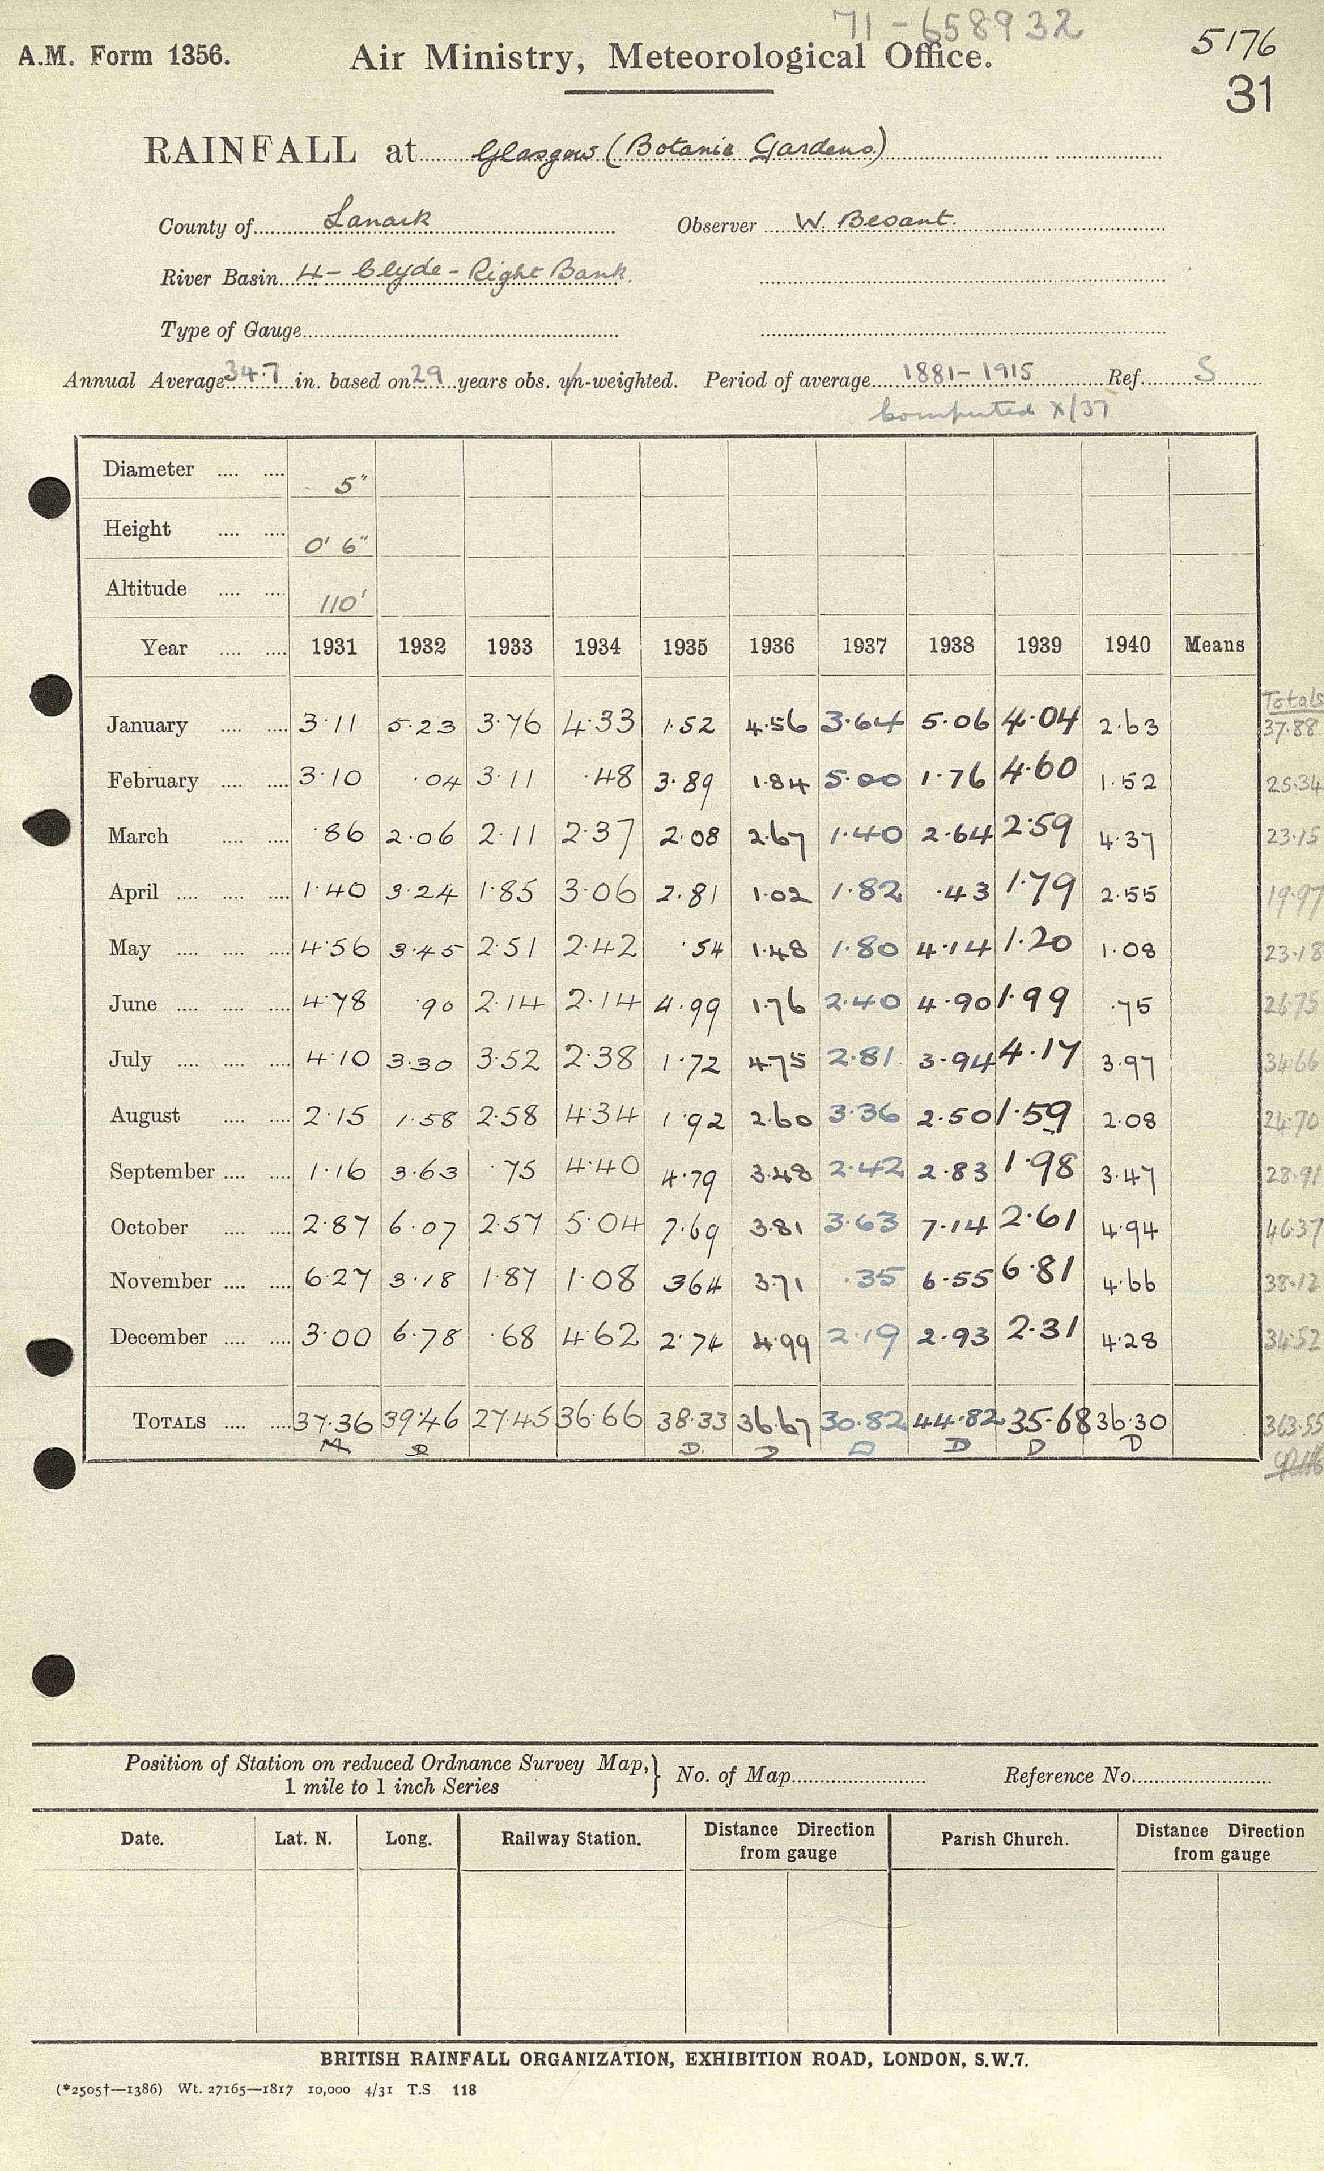 71-658932
A.M. Form 1356. Air Ministry, Meteorological Office. 5176
31
RAINFALL at Glasgow (Botanic Gardens)
County of Lanark Observer W. Besant.
River Basin 4 - Clyde - Right Bank.
Type of Gauge
Annual Average 34.7 in. based on 29 years obs. un-weighted. Period of average 1881-1915 Ref. S
Computed X/37
Diameter 5"
Height 0' 6"
Altitude 110'
Year 1931 1932 1933 1934 1935 1936 1937 1938 1939 1940 Means
Totals
January 3.11 5.23 3.76 4.33 1.52 4.56 3.64 5.06 4.04 2.63 37.88
February 3.10 .04 3.11 .48 3.89 1.84 5.00 1.76 4.60 1.52 25.34
March .86 2.06 2.11 2.37 2.08 2.67 1.40 2.64 2.59 4.37 23.15
April 1.40 3.24 1.85 3.06 2.81 1.02 1.82 .43 1.79 2.55 19.97
May 4.56 3.45 2.51 2.42 .54 1.48 1.80 4.14 1.20 1.08 23.18
June 4.78 .90 2.14 2.14 4.99 1.76 2.40 4.90 1.99 .75 26.75
July 4.10 3.30 3.52 2.38 1.72 4.75 2.81 3.94 4.17 3.97 34.66
August 2.15 1.58 2.58 4.34 1.92 2.60 3.36 2.50 1.59 2.08 24.70
September 1.16 3.63 .75 4.40 4.79 3.48 2.42 2.83 1.98 3.47 28.91
October 2.87 6.07 2.57 5.04 7.69 3.81 3.63 7.14 2.61 4.94 46.37
November 6.27 3.18 1.87 1.08 3.64 3.71 .35 6.55 6.81 4.66 38.12
December 3.00 6.78 .68 4.62 2.74 4.99 2.19 2.93 2.31 4.28 34.52
TOTALS 37.36 39.46 27.45 36.66 38.33 36.67 30.82 44.82 35.68 36.30 363.55
D D D D D D
Position of Station on reduced Ordnance Survey Map, } No. of Map Reference No.
1 mile to 1 inch Series
Date. Lat. N. Long. Railway Station. Distance Direction from gauge Parish Church. Distance Direction from gauge
BRITISH RAINFALL ORGANIZATION, EXHIBITION ROAD, LONDON, S.W.7.
(*2505†—1386) Wt. 27165—1817 10,000 4/31 T.S. 118